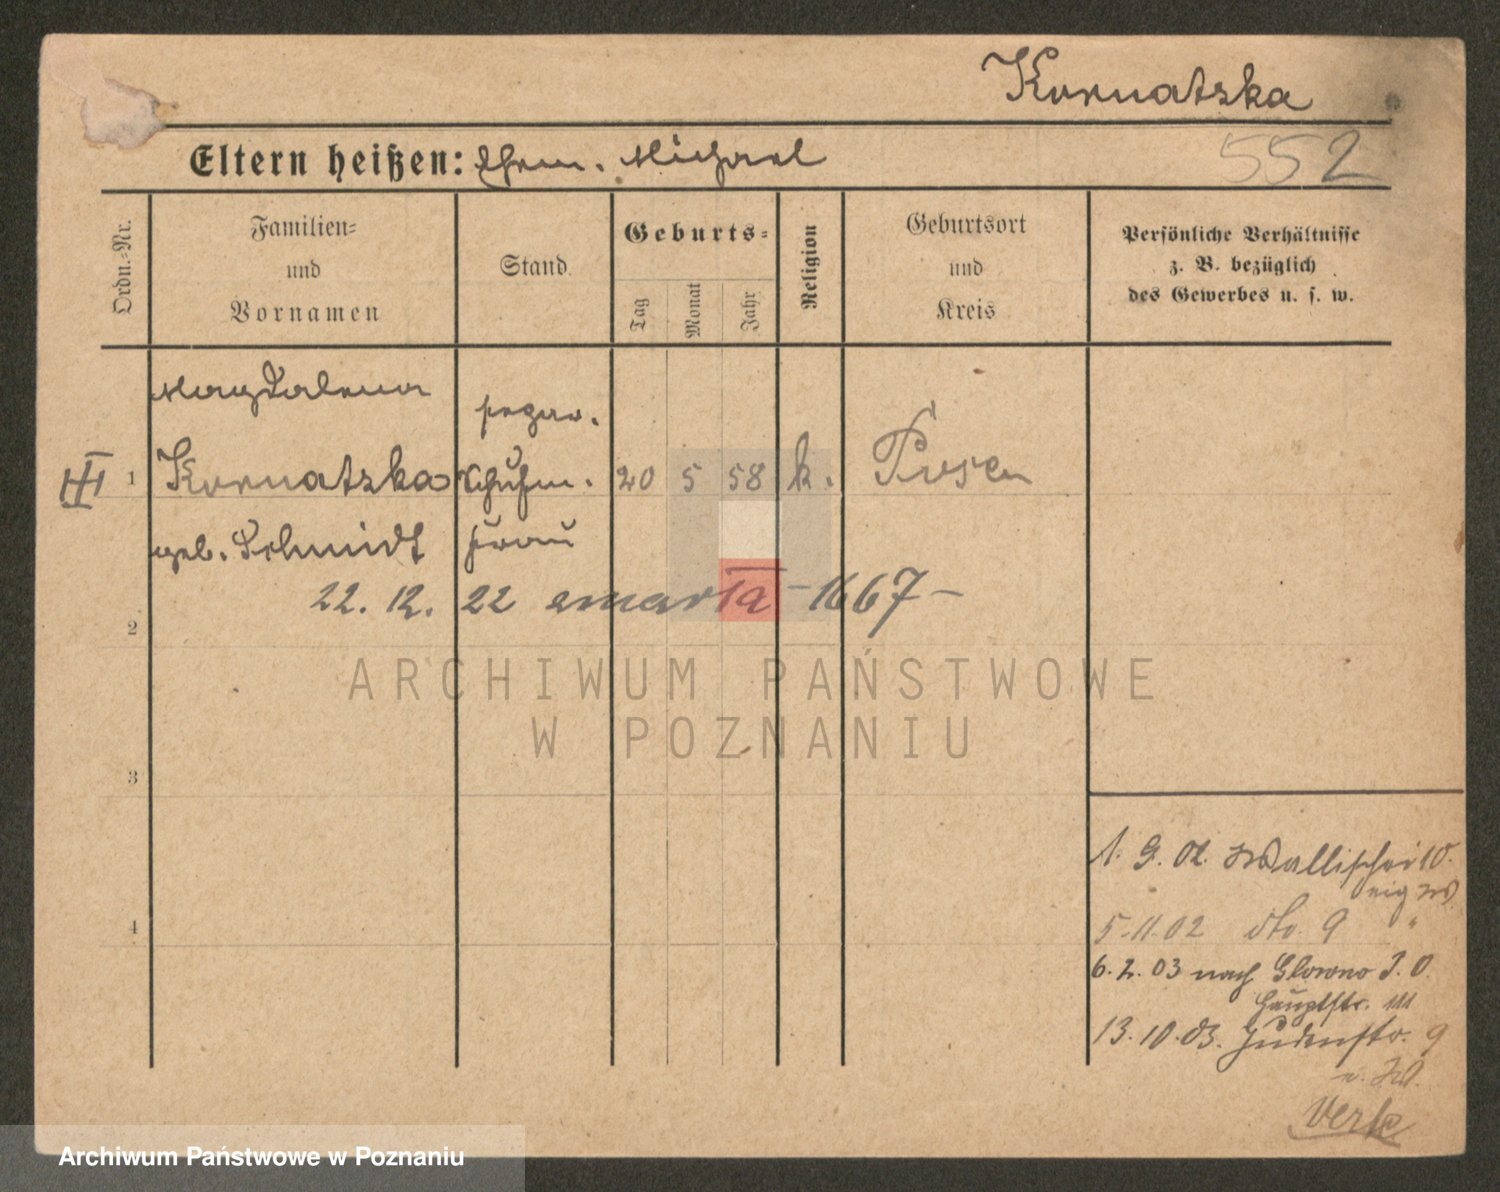 Kornatzka
Eltern heißen: Ehem. Michael
552
Ordn.-Nr.
Familien-
und
Vornamen
Stand
Geburts-
Tag
Monat
Jahr
Religion
Geburtsort
und
Kreis
Persönliche Verhältnisse
z. B. bezüglich
des Gewerbes u. s. w.
Magdalena
separ.
III 1 Kornatzka Schuhm. 20 5 58 k. Posen
geb. Schmidt frau
22. 12. 22 zmarła - 1667 -
2
ARCHIWUM PAŃSTWOWE
W POZNANIU
3
1. 9. 02. Wallischei 10.
eig W
4
5.11.02 dto. 9 "
6. 2. 03 nach Glowno I. O.
Hauptstr. 111
13. 10. 03. Judenstr. 9
Archiwum Państwowe w Poznaniu